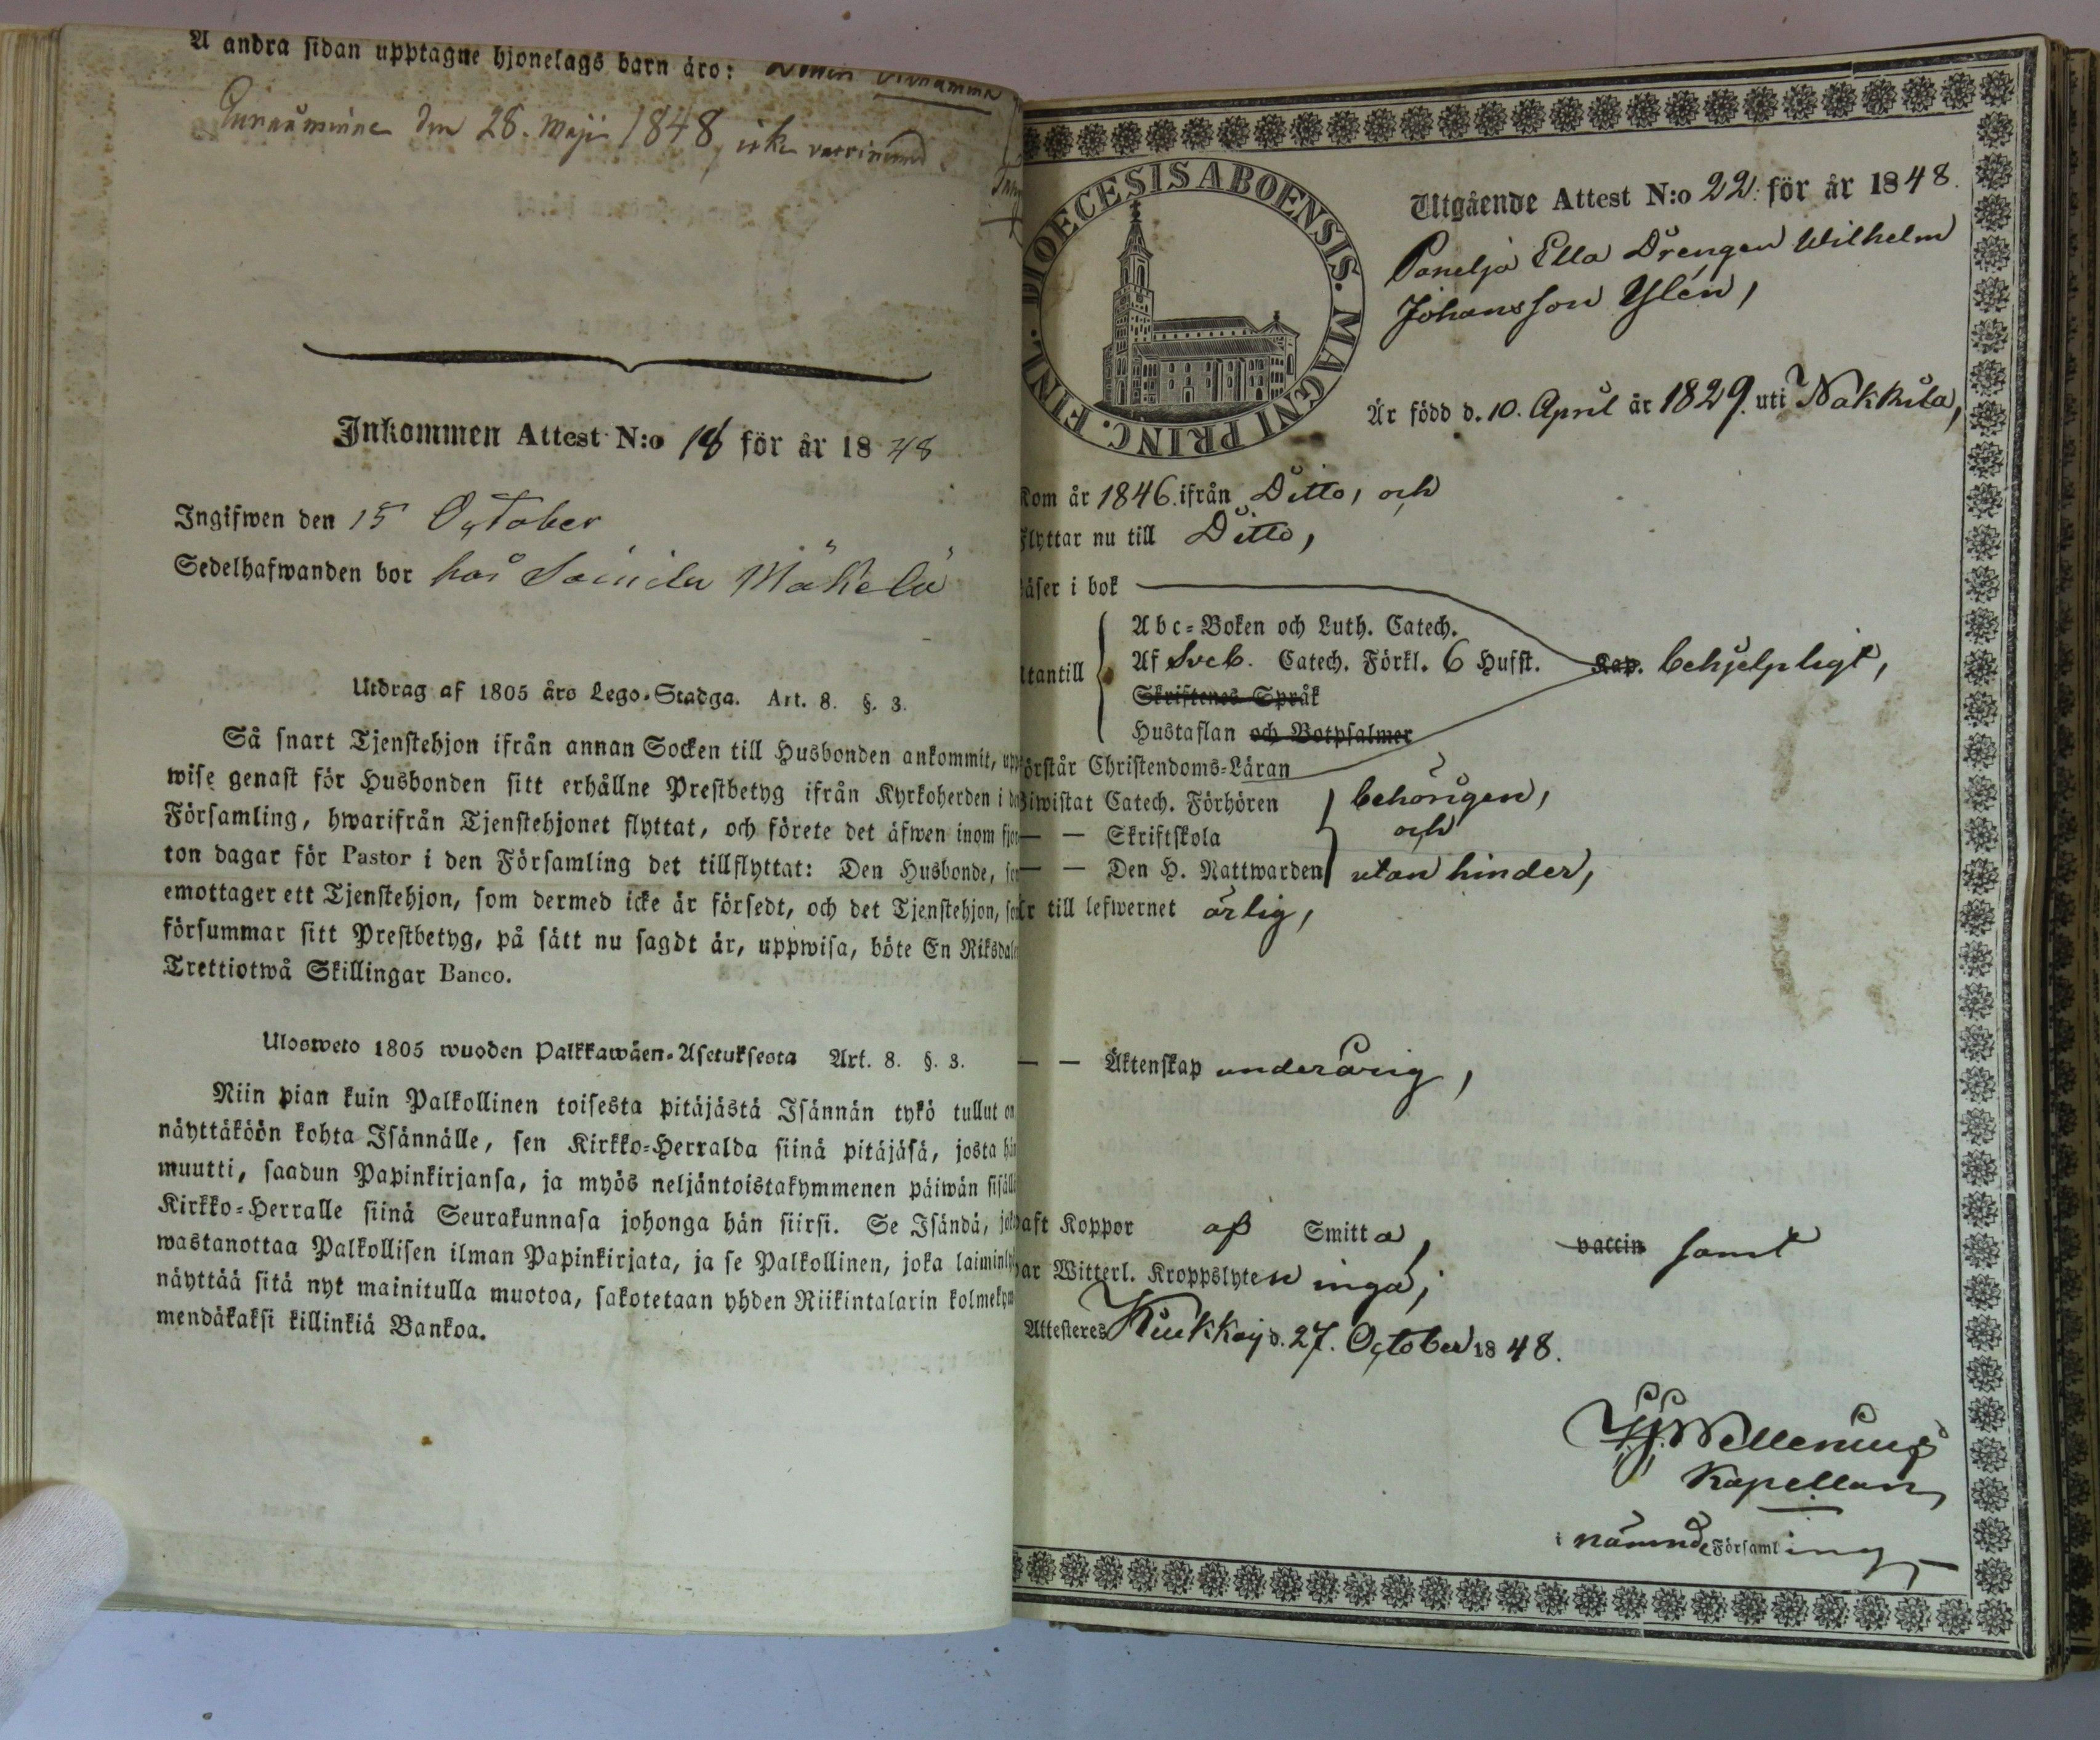 A andra sidan upptagne hjonelags barn äro:
den 28. Maji 1848
Inkommen Attest N:o 18 för år 1848
Ingifwen den 15 October
Sedelhafwanden bor hos Mäkelä
Utdrag af 1805 års Lego-Stadga. Art. 8. §. 3.
Så snart Tjenstehjon ifrån annan Socken till Husbonden ankommit, upp
wise genast för Husbonden sitt erhållne Prestbetyg ifrån Kyrkoherden i de
Församling, hwarifrån Tjenstehjonet flyttat, och förete det äfwen inom fjor
ton dagar för Pastor i den Församling det tillflyttat: Den Husbonde, so
emottager ett Tjenstehjon, som dermed icke är försedt, och det Tjenstehjon, so
försummar sitt Prestbetyg, på sätt nu sagdt är, uppwisa, böte En Riksdale
Trettiotwå Skillingar Banco.
Ulosweto 1805 wuoden Palkkawäen-Asetuksesta Art. 8. §. 3.
Niin pian kuin Palkollinen toisesta pitäjästä Isännän tykö tullut on
näyttäköön kohta Isännälle, sen Kirkko-Herralda siinä pitäjäsä, josta hän
muutti, saadun Papinkirjansa, ja myös neljäntoistakymmenen päiwän sisäll
Kirkko-Herralle siinä Seurakunnasa johonga hän siirsi. Se Isändä, jok
wastanottaa Palkollisen ilman Papinkirjata, ja se Palkollinen, joka laiminly
näyttää sitä nyt mainitulla muotoa, sakotetaan yhden Riikintalarin kolmekym
mendäkaksi killinkiä Bankoa.
DIOECESIS ABOENSIS. MAGNI PRINC. FINL.
Utgående Attest N:o 22. för år 1848.
Panelja Ella Drengen Wilhelm
Johansson Ylén,
Är född d. 10. April år 1829. uti Nakkila,
Kom år 1846. ifrån Ditto, och
Flyttar nu till Ditto,
Läser i bok
Abc-Boken och Luth. Catech.
Utantill Af Sveb. Catech. Förkl. 6 Hufst. Kap. behjelpligt,
Skriftenes Språk
Hustaflan och Botpsalmer
Förstår Christendoms-Läran
Biwistat Catech. Förhören behörigen,
— — Skriftskola och
— — Den H. Nattwarden utan hinder,
Är till lefwernet ärlig,
— — Äktenskap underårig,
Haft Koppor af Smitta, vaccin samt
Har Witterl. Kroppslyten inga;
Attesteres Kiukkoj d. 27. October 1848.
Wellenius
Kapellan
i nämnde Församling